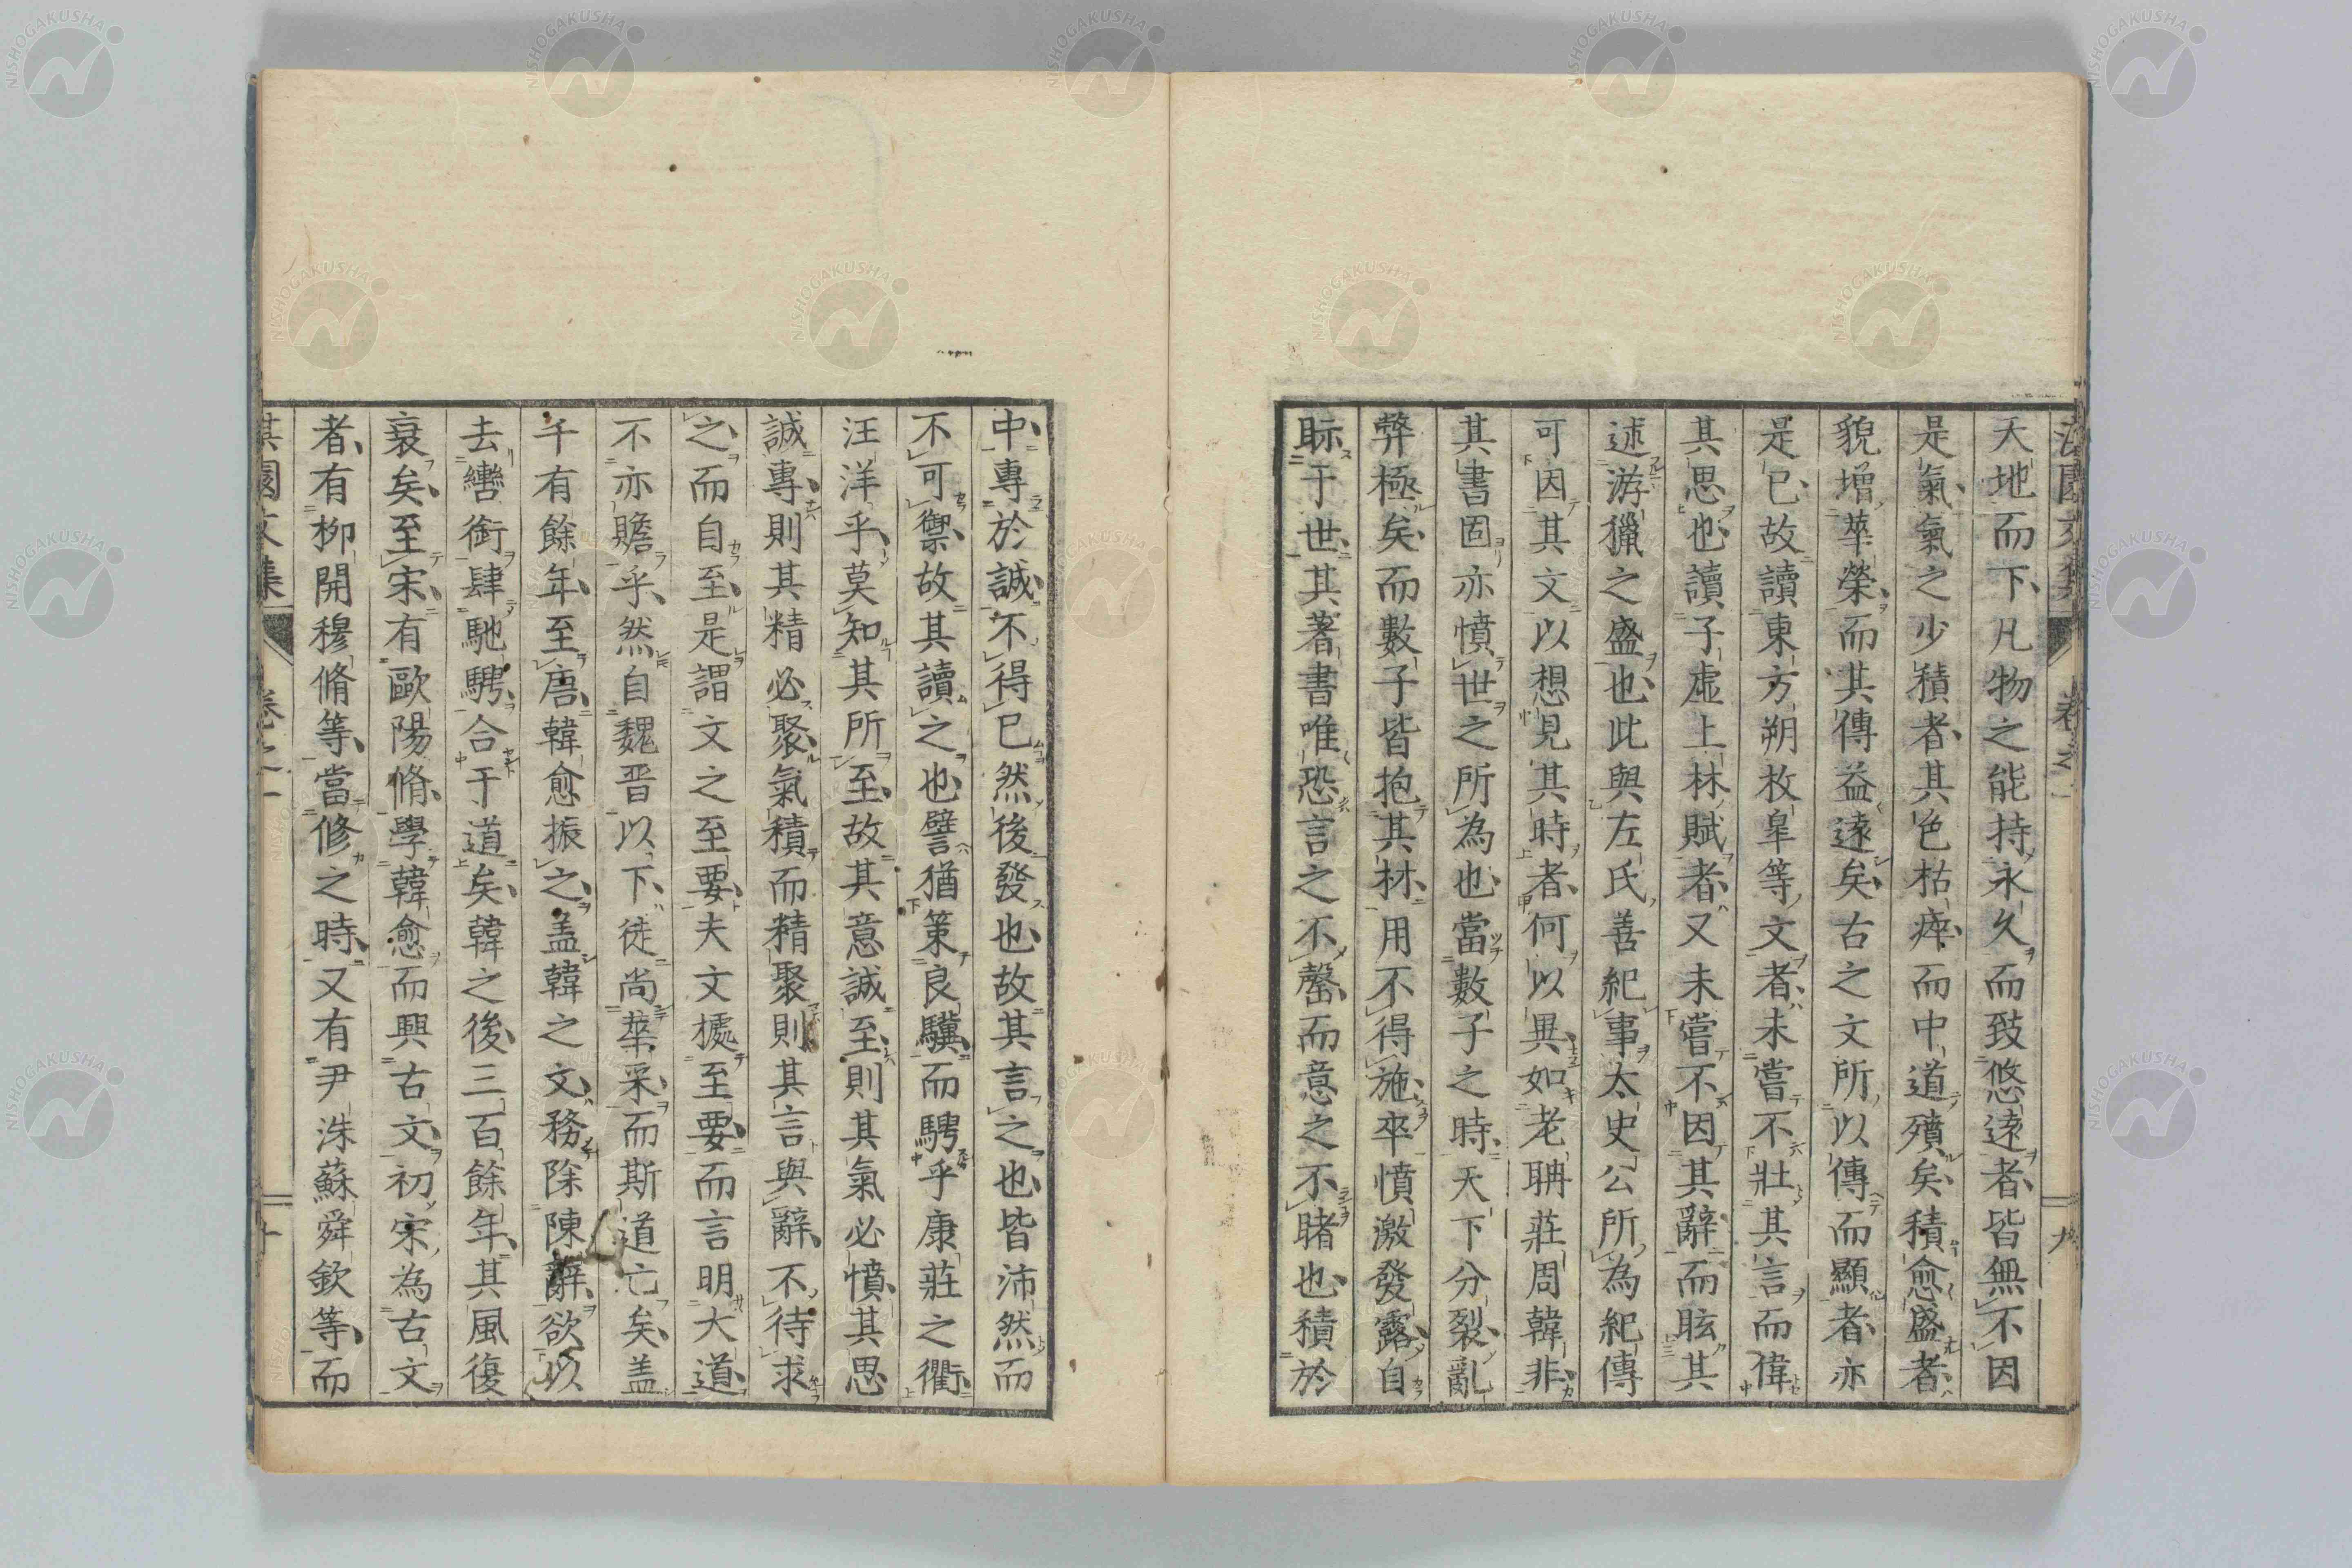 天地而下、凡物之能持永久而致悠遠者、皆無不因
是氣、氣之少積者、其色枯瘁、而中道殰矣、積愈盛者、
貌增華榮、而其傳益遠矣、古之文所以傳而顯者、亦
是已、故讀東方朔枚皐等文者、未嘗不壯其言而偉
其思也、讀子虛上林賦者、又未嘗不因其辭而眩其
述游獵之盛也、此與左氏善紀事、太史公所為紀傳
可因其文以想見其時者、何以異、如老聃莊周韓非、
其書固亦憤世之所為也、當數子之時、天下分裂、亂
弊極矣、而數子皆抱其材、用不得施、卒憤激發露、自
眎于世、其著書唯恐言之不罄、而意之不睹也、積於
中、專於誠、不得已然後發也、故其言之也、皆沛然而
不可禦、故其讀之也、譬猶策良驥、而騁乎康莊之衢、
汪洋乎、莫知其所至、故其意誠至、則其氣必憤、其思
誠專、則其精必聚、氣積而精聚、則其言與辭、不待求
之、而自至、是謂文之至要、夫文據至要、而言明大道、
不亦贍乎、然自魏晋以下、徒尚華采、而斯道亡矣、盖
千有餘年、至唐、韓愈振之、盖韓之文、務除陳辭、欲以
去轡銜肆馳騁、合于道矣、韓之後、三百餘年、其風復
衰矣、至宋、有歐陽脩、學韓愈而興古文、初宋為古文
者、有柳開穆脩等、當修之時、又有尹洙蘇舜欽等、而
淇園文集
卷之一
九
淇園文集
卷之一
十
NISHOGAKUSHA